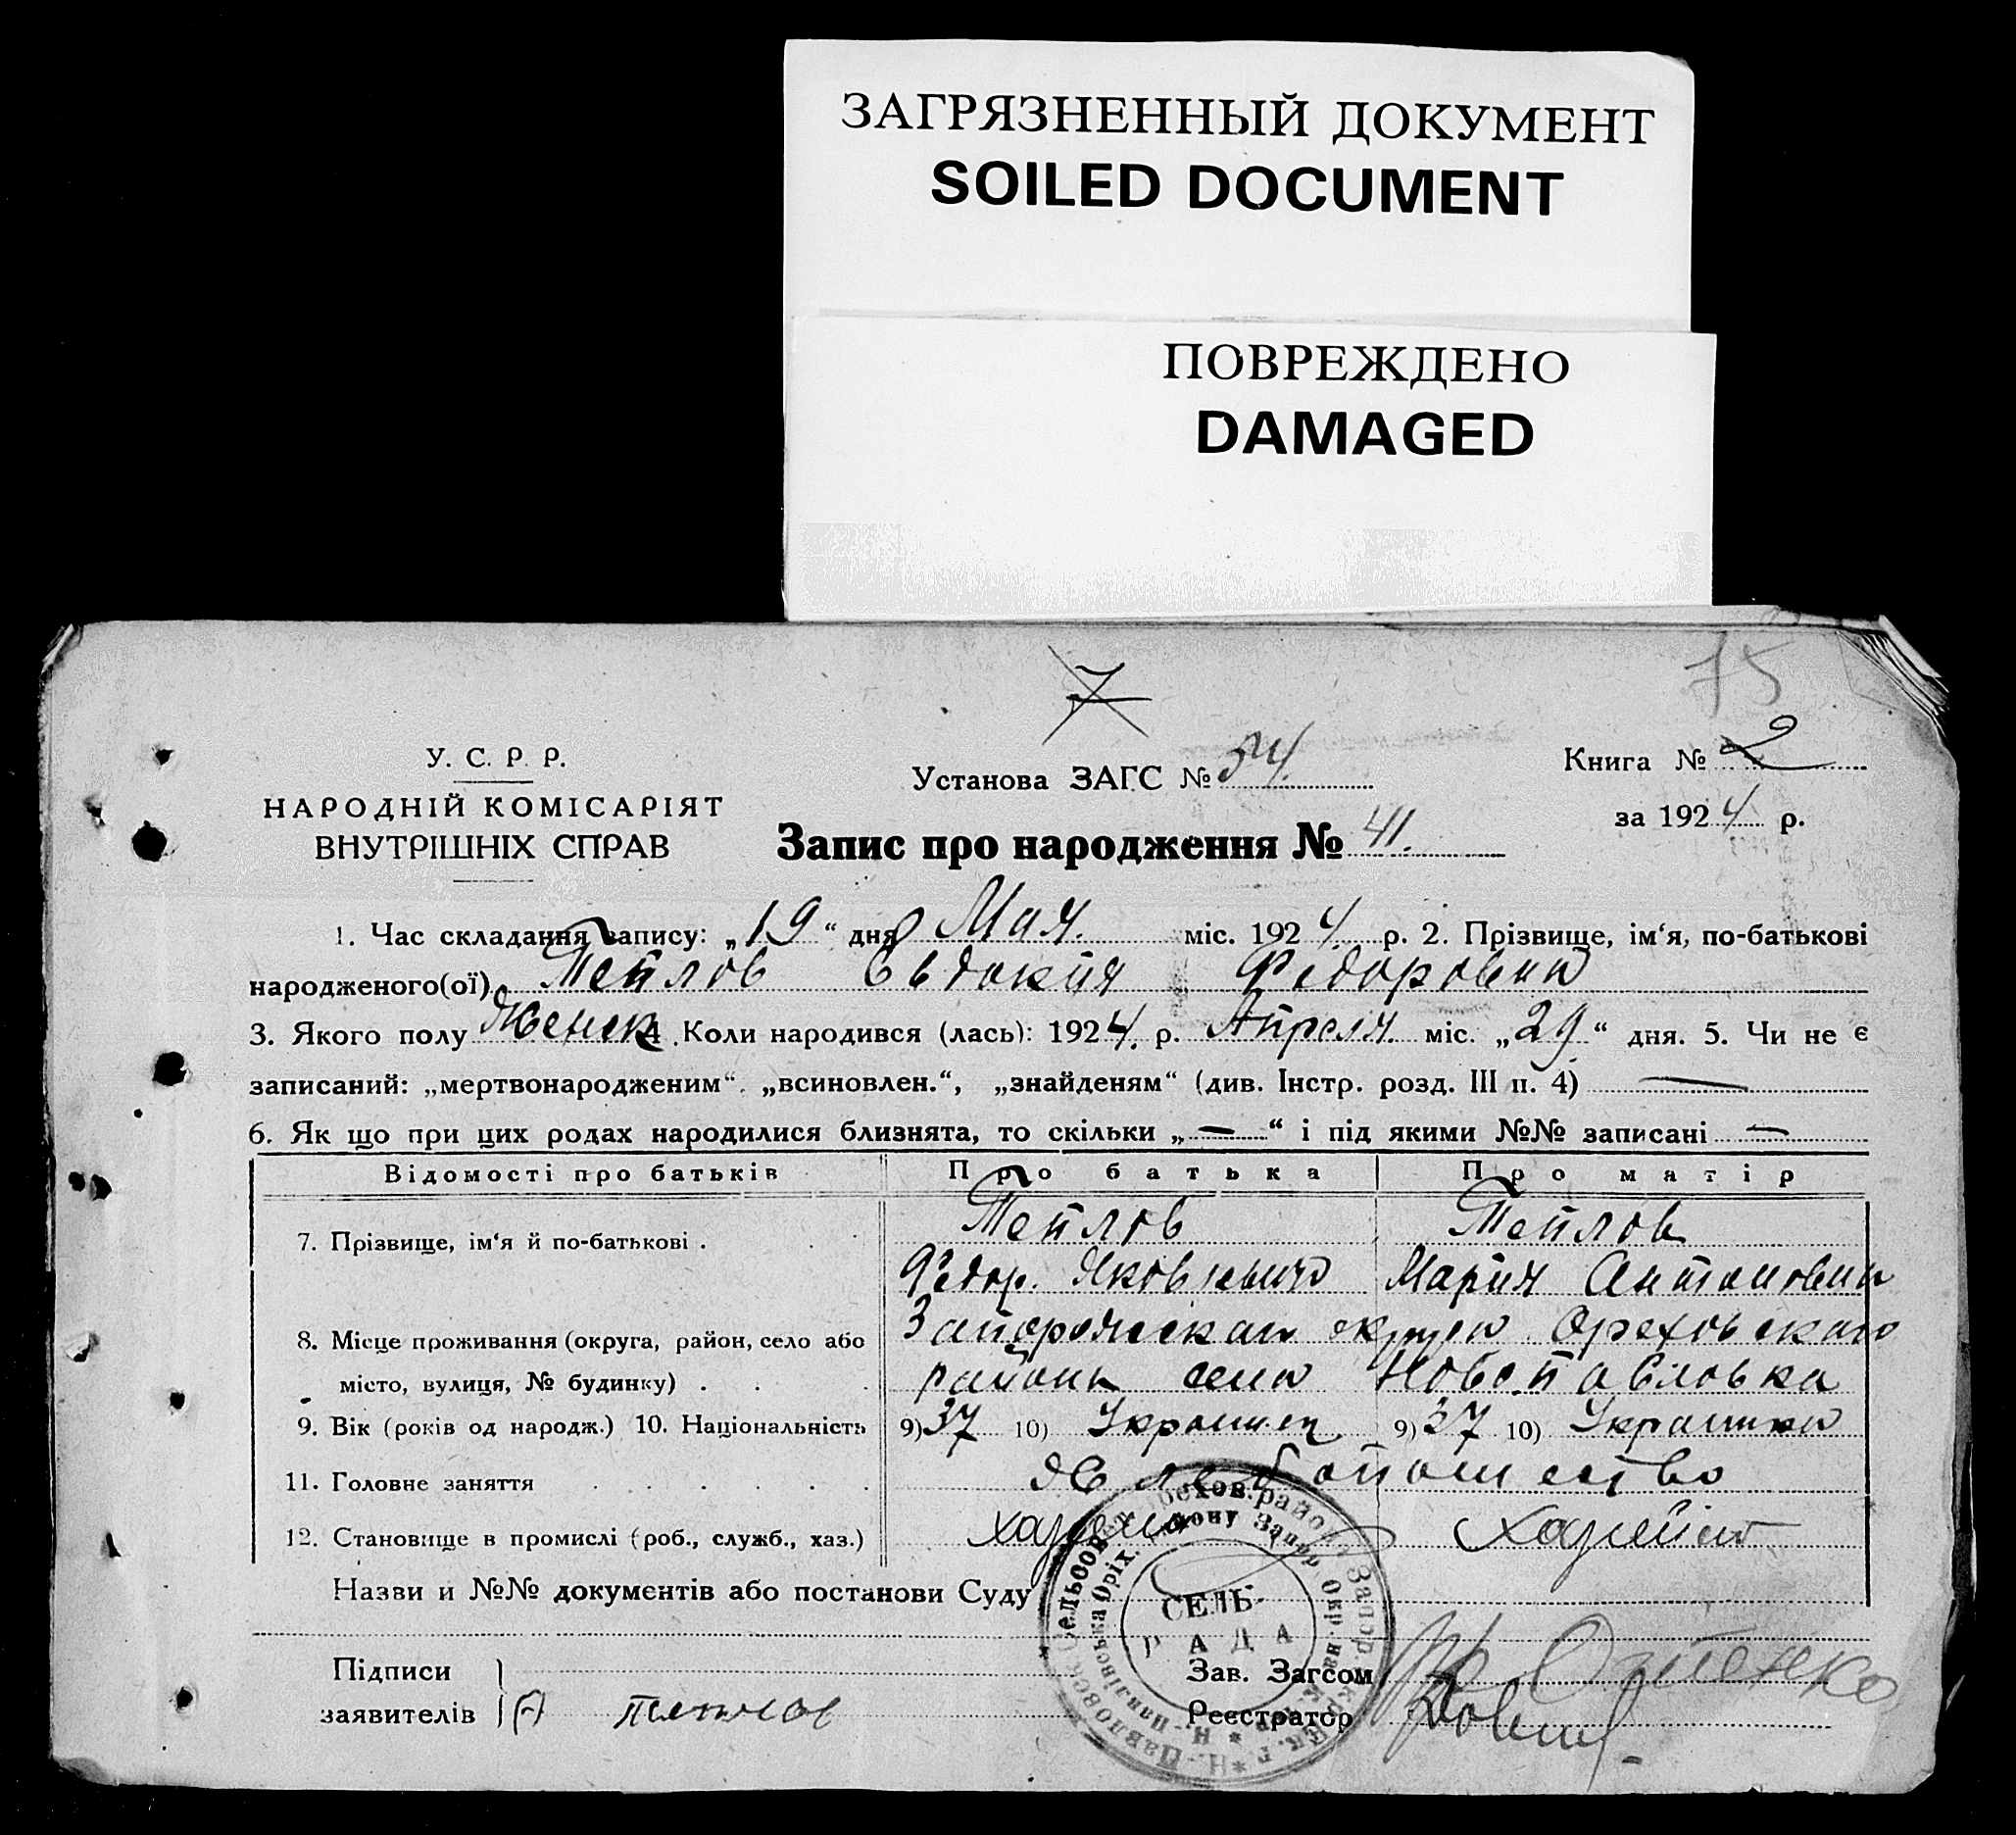 ЗАГРЯЗНЕННЫЙ ДОКУМЕНТ
SOILED DOCUMENT
ПОВРЕЖДЕНО
DAMAGED
75
7
У. С. Р. Р.
НАРОДНІЙ КОМІСАРІЯТ
ВНУТРІШНІХ СПРАВ
Установа ЗАГС № 54.
Книга № 2
за 1924 р.
Запис про народження № 41.
1. Час складання запису: „19“ дня Мая. міс. 1924. р. 2. Прізвище, ім‘я, по-батькові
народженого(ої) Теплов Евдокия Федоровна
3. Якого полу Женск 4. Коли народився (лась): 1924. р. Апреля. міс. „29“ дня. 5. Чи не є
записаний: „мертвонародженим“. „всиновлен.“, „знайденям“ (див. Інстр. розд. III п. 4) —
6. Як що при цих родах народилися близнята, то скільки „—“ і під якими №№ записані —
Відомості про батьків Про батька Про матір
7. Прізвище, ім‘я й по-батькові . Теплов Теплов
Федор. Яковлевич Мария Антоновна
8. Місце проживання (округа, район, село або Запорожская округа Ореховскаго
місто, вулиця, № будинку) . района село Новопавловка
9. Вік (років од народж.) 10. Національність 9) 37 10) Украинец 9) 37 10) Украинка
11. Головне заняття Хлебопашество
12. Становище в промислі (роб., служб., хаз.) хозяин Хозяйка
Назви и №№ документів або постанови Суду
СЕЛЬ-
РАДА
Підписи
заявителів Теплов
Зав. Загсом
Реєстратор